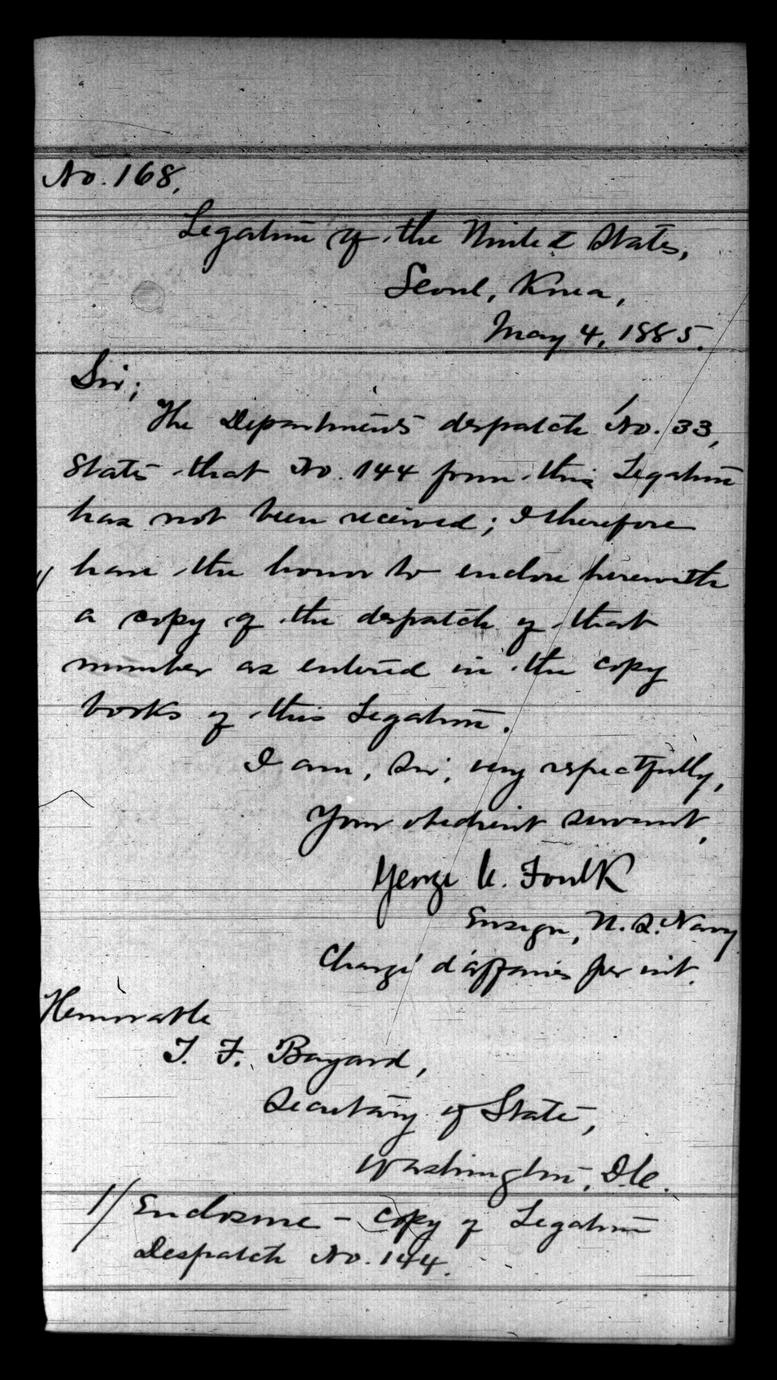 No. 168.
Legation of the United States,
Seoul, Korea,
May 4, 1885.
Sir;
The Department's despatch No. 33,
states that No. 144 from this Legation
has not been received; I therefore
1/ have the honor to enclose herewith
a copy of the despatch of that
number as entered in the copy
books of this Legation.
I am, Sir, very respectfully,
Your obedient servant,
George C. Foulk
Ensign, U.S. Navy
Chargé d'affaires per int.
Honorable
T. F. Bayard,
Secretary of State,
Washington, D.C.
1/ Enclosure - copy of Legation
Despatch No. 144.